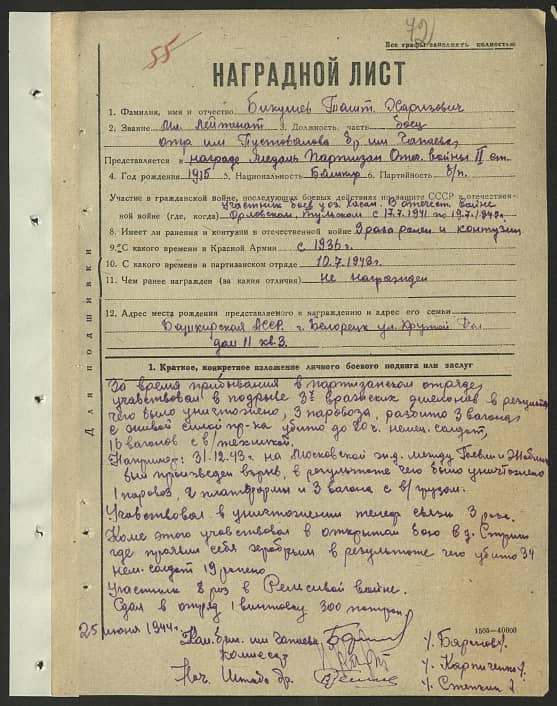 72
55
Все графы заполнять полностью
НАГРАДНОЙ ЛИСТ
1. Фамилия, имя и отчество Бикулиев Ташт Харизович
2. Звание Мл. Лейтенант 3. Должность, часть Боец
отр. им Пустовалова бр. им Чапаева
Представляется к награде Медаль Партизан Отеч. войны II ст.
4. Год рождения 1915 5. Национальность Башкир 6. Партийность б/п.
Участие в гражданской войне, последующих боевых действиях по защите СССР и отечествен-
Участник боев у оз. Хасан. В отечест. войне
ной войне (где, когда) Орловском, Тульском с 17.7.1941 по 19.7.1942г.
8. Имеет ли ранения и контузии в отечественной войне 3 раза ранен и контузии
9. С какого времени в Красной Армии с 1936 г.
10. С какого времени в партизанском отряде 10.7.1943г.
11. Чем ранее награжден (за какия отличия) Не награжден
12. Адрес места рождения представляемого к награждению и адрес его семьи
Башкирская АССР. г. Белорецк ул. Крутой
дом 11 кв 3.
Для подшивки
1. Краткое, конкретное изложение личного боевого подвига или заслуг
За время пребывания в партизанском отряде,
учавствовал в подрыве 3х вражских эшелонов в результ
чего было уничтожено, 3 паровоза, разбито 3 вагона
с живой силой пр-ка убито до 20 ч. немец. солдат,
16 вагонов с в/техникой.
Например: 31.12.43г. на Московской ж.д. между Тевли и Жабин
был произведен взрыв, в результате чего было уничтожено
1 паровоз, 2 платформы и 3 вагона с в/грузом.
Учавствовал в уничтожении телеф связи 3 раза.
Кроме этого учавствовал в открытом бою в д.
где проявил себя храбрым в результате чего убито 34
нем. солдат 19 ранено
Участник 2 раз в Рельсовой войне.
Сдал в отряд 1 винтовку 300 патрон
25 июня 1944г.
1505—40000
Ком. бриг. им Чапаева
Комиссар
Нач. Штаба бр.
/. Карпиченко/.